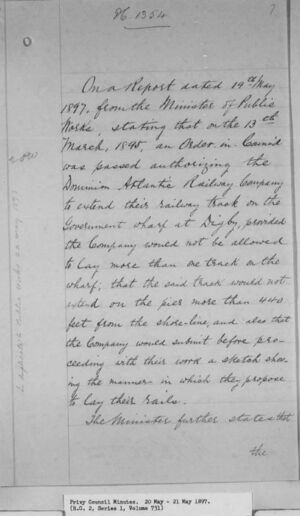 PC. 1354
7
On a Report dated 19th May
1897, from the Minister of Public
Works, stating that on the 13th
March, 1895, an Order in Council
was passed authorizing the
Dominion Atlantic Railway Company
to extend their railway track on the
Government wharf at Digby, provided
the Company would not be allowed
to lay more than one track on the
wharf; that the said track would not
extend on the pier more than 440
feet from the shore-line, and also that
the Company would submit before pro-
ceeding with their work a sketch show-
ing the manner in which they propose
to lay their rails.
The Minister further states that
the
Privy Council Minutes. 20 May - 21 May 1897.
(R.G. 2, Series 1, Volume 731)